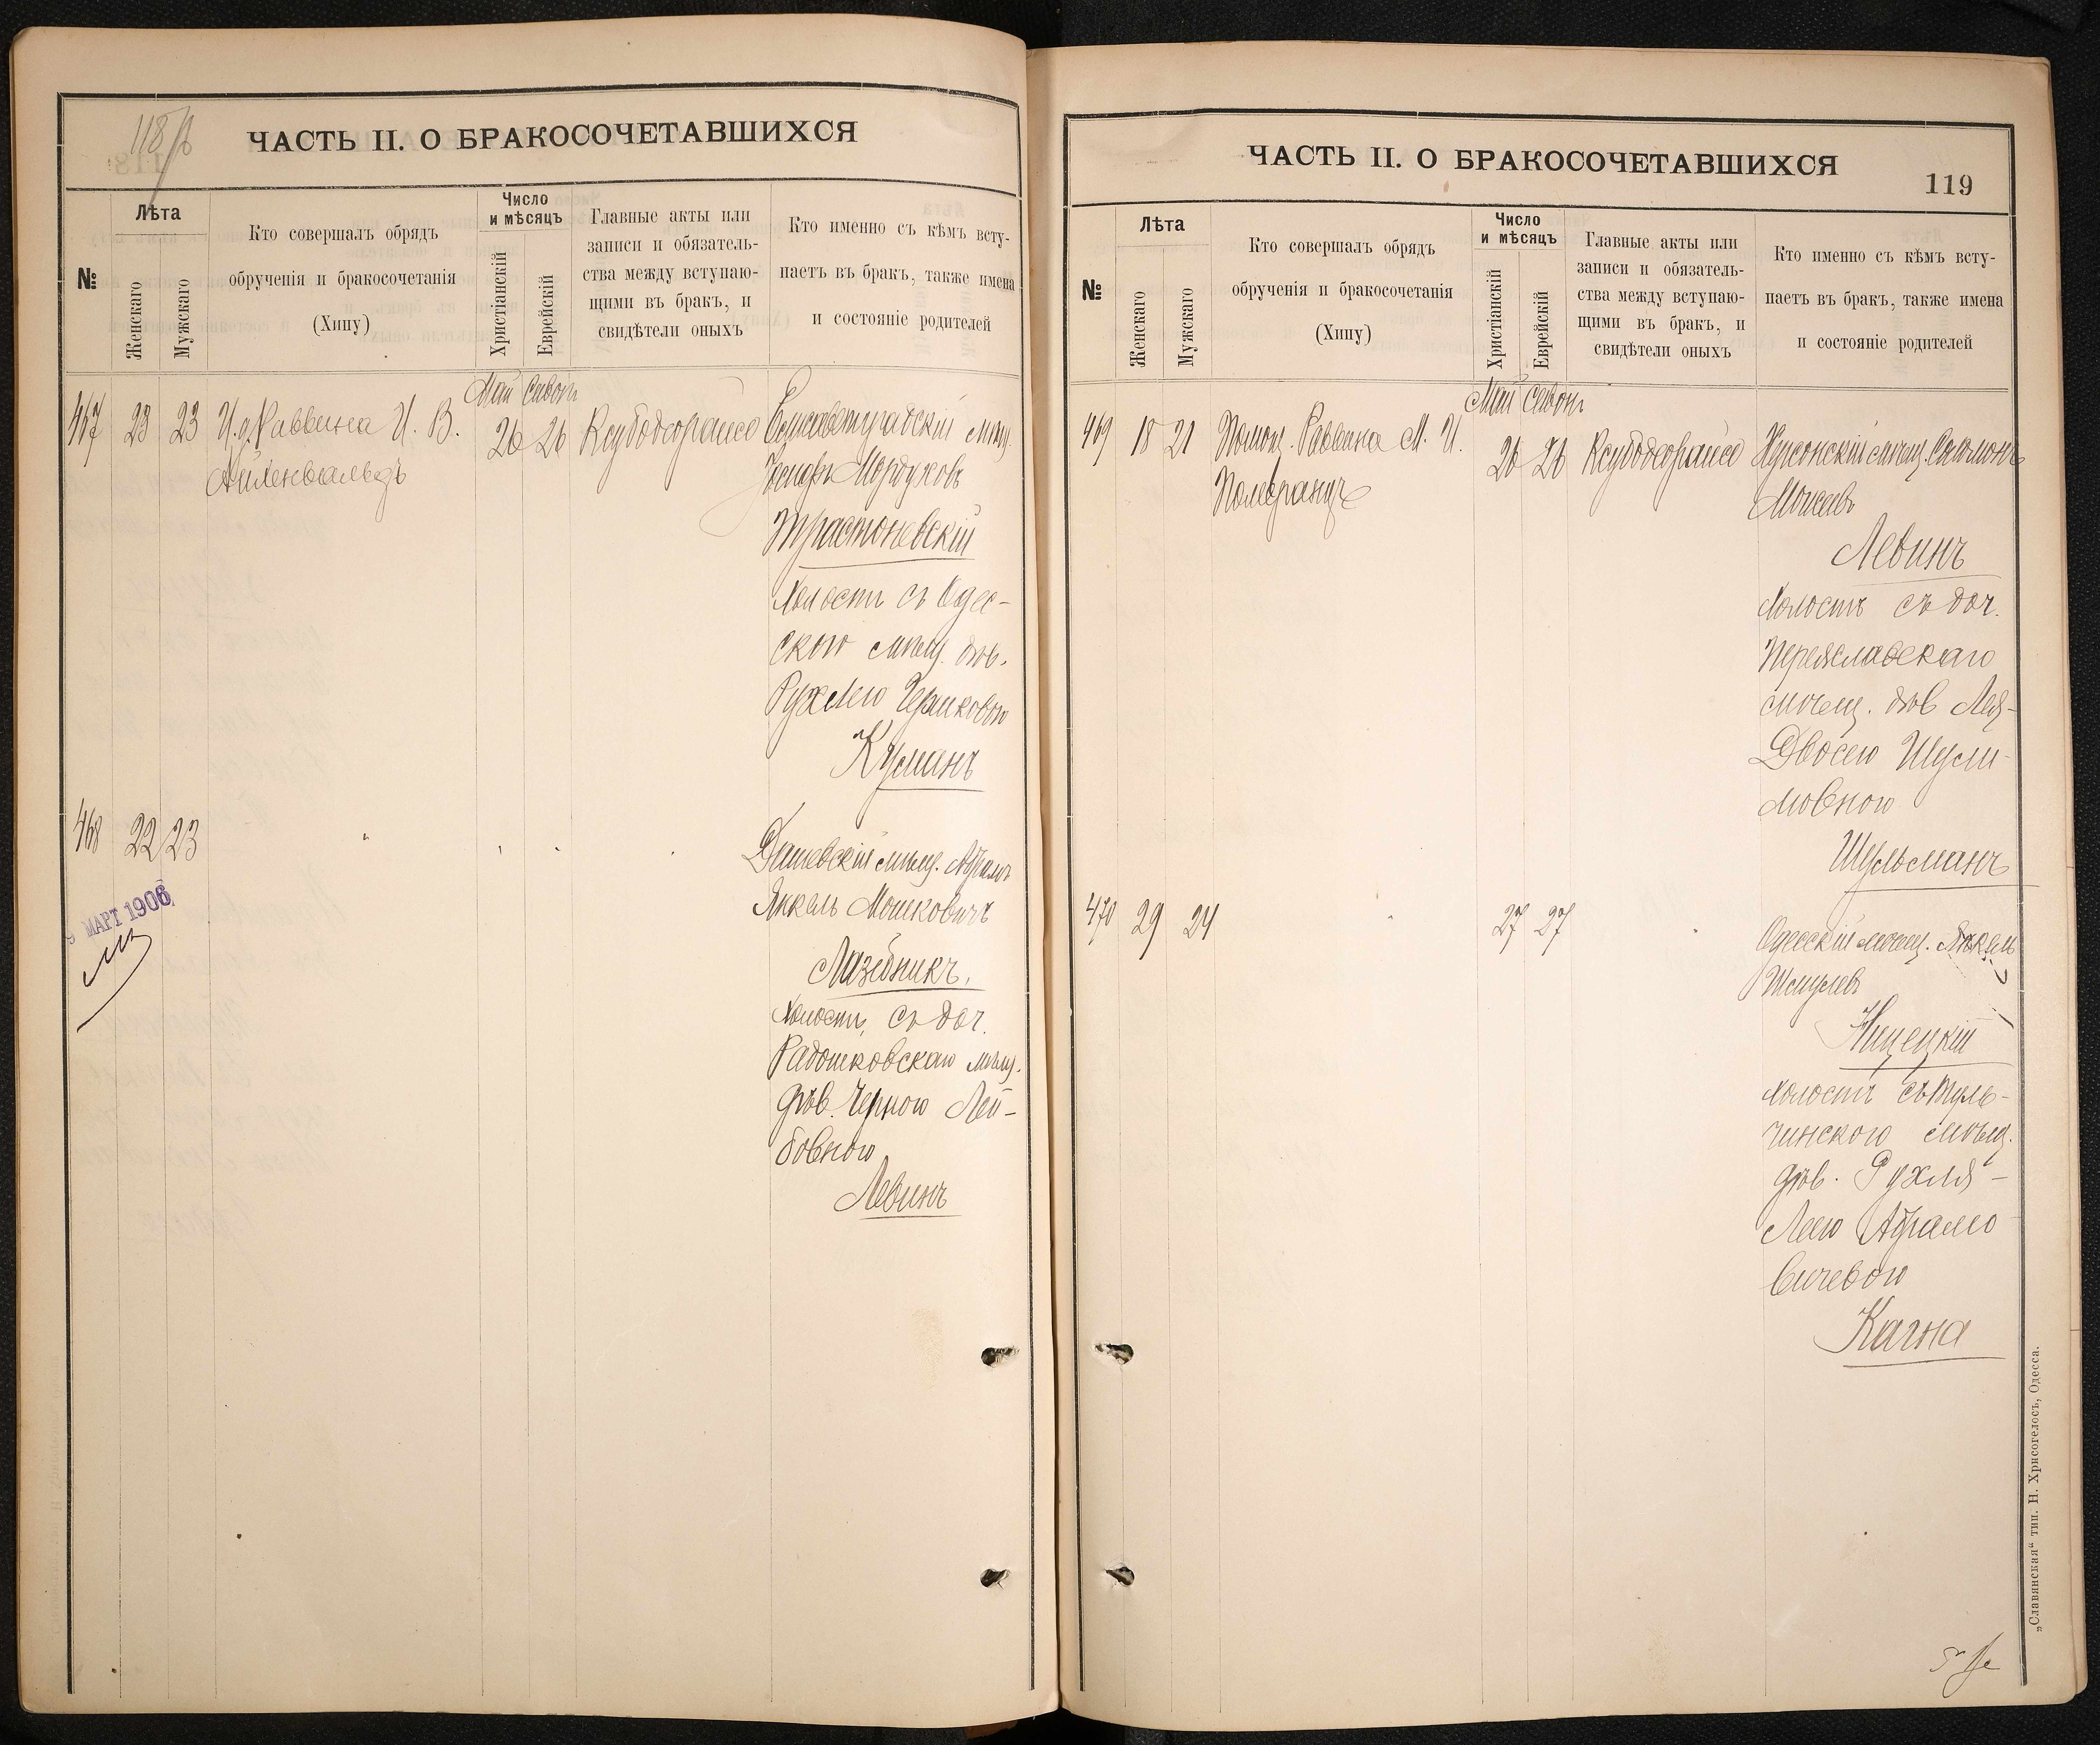 118
ЧАСТЬ II. О БРАКОСОЧЕТАВШИХСЯ
№
Лѣта
Женскаго
Мужскаго
Кто совершалъ обрядъ
обрученія и бракосочетанія
(Хипу)
Число
и мѣсяцъ
Христіанскій
Еврейскій
Главные акты или
записи и обязатель-
ства между вступаю-
щими въ бракъ, и
свидѣтели оныхъ
Кто именно съ кѣмъ всту-
паетъ въ бракъ, также имена
и состояніе родителей
Май Сивонъ
467 23 23 И.о. Раввина И. В.
Айхенвальдъ
26 26
Елисаветградскій мѣщ.
Іосифъ Мордуховъ
Трастоневскій
холостъ съ Одес-
скою мѣщ. дѣв.
Рухлею Герш​ковою
Кусманъ
468 22 23
Дашевскій мѣщ. Абрамъ
Янкель Мошковичъ
Лазебникъ,
холостъ, съ доч.
Радошковскаго мѣщ.
дѣв. Черною Лей-
бовною
Левинъ
9 МАРТ 1906
ЧАСТЬ II. О БРАКОСОЧЕТАВШИХСЯ
119
№
Лѣта
Женскаго
Мужскаго
Кто совершалъ обрядъ
обрученія и бракосочетанія
(Хипу)
Число
и мѣсяцъ
Христіанскій
Еврейскій
Главные акты или
записи и обязатель-
ства между вступаю-
щими въ бракъ, и
свидѣтели оныхъ
Кто именно съ кѣмъ всту-
паетъ въ бракъ, также имена
и состояніе родителей
Май Сивонъ
469 18 21 Помощ. Раввина М. И.
Померанцъ
26 26
Херсонскій мѣщ. Соломонъ
Моисеевъ
Левинъ
холостъ съ доч.
Переяславскаго
мѣщ. дѣв. Лея-
Двосею Шули-
мовною
Шульманъ
470 29 24
27 27
Одесскій мѣщ. Янкель
Шмулевъ
Ницецкій
холостъ съ Туль-
чинскою мѣщ.
дѣв. Рухля-
Леею Абрамо
вичевою
Кагна
„Славянская“ тип. Н. Хрисогелосъ, Одесса.